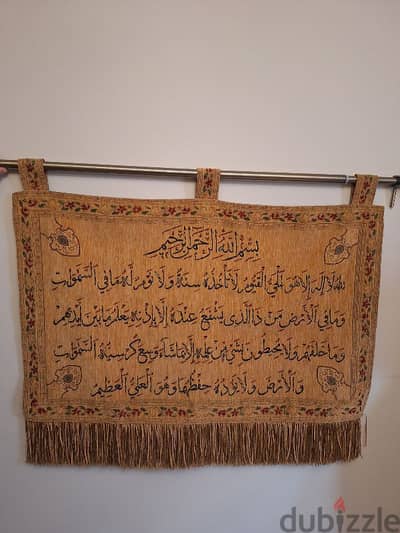 بِسْمِ اللَّهِ الرَّحْمٰنِ الرَّحِيمِ
اللهُ لَا إِلٰهَ إِلَّا هُوَ الْحَيُّ الْقَيُّومُ لَا تَأْخُذُهُ سِنَةٌ وَلَا نَوْمٌ لَهُ مَا فِي السَّمٰوَاتِ
وَمَا فِي الْأَرْضِ مَنْ ذَا الَّذِي يَشْفَعُ عِنْدَهُ إِلَّا بِإِذْنِهِ يَعْلَمُ مَا بَيْنَ أَيْدِيهِمْ
وَمَا خَلْفَهُمْ وَلَا يُحِيطُونَ بِشَيْءٍ مِنْ عِلْمِهِ إِلَّا بِمَا شَاءَ وَسِعَ كُرْسِيُّهُ السَّمٰوَاتِ
وَالْأَرْضَ وَلَا يَؤُدُهُ حِفْظُهُمَا وَهُوَ الْعَلِيُّ الْعَظِيمُ
dubizzle